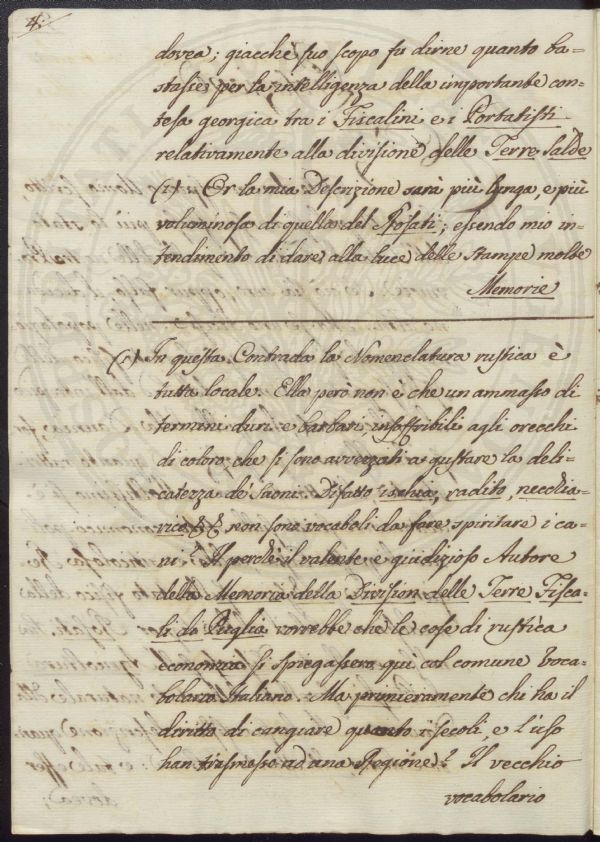 4.
dovea; giacchè suo scopo fu dirne quanto ba=
stasse per la intelligenza della importante con=
tesa georgica tra i Fiscalini e i Portatisti
relativamente alla divisione delle Terre Salde
(1) Or la mia Descrizione sarà più lunga, e più
voluminosa di quella del Rosati; essendo mio in=
tendimento di dare alla luce delle stampe molte
Memorie
(1) In questa Contrada la Nomenclatura rustica è
tutta locale. Ella però non è che un ammasso di
termini duri e barbari insoffribili agli orecchi
di coloro che si sono avvezzati a gustare la deli=
catezza de' suoni. Difatto ischia, radito, necchia=
rico &c &c non sono vocaboli da fare spiritare i ca=
ni? Il perchè il valente e giudizioso Autore
della Memoria della Division delle Terre Fisca=
li da Puglia vorrebbe che le cose di rustica
economia si spiegassero qui col comune Voca=
bolario Italiano. Ma primieramente chi ha il
diritto di cangiare quanto i secoli, e l'uso
han trasmesso ad una Regione? Il vecchio
vocabolario